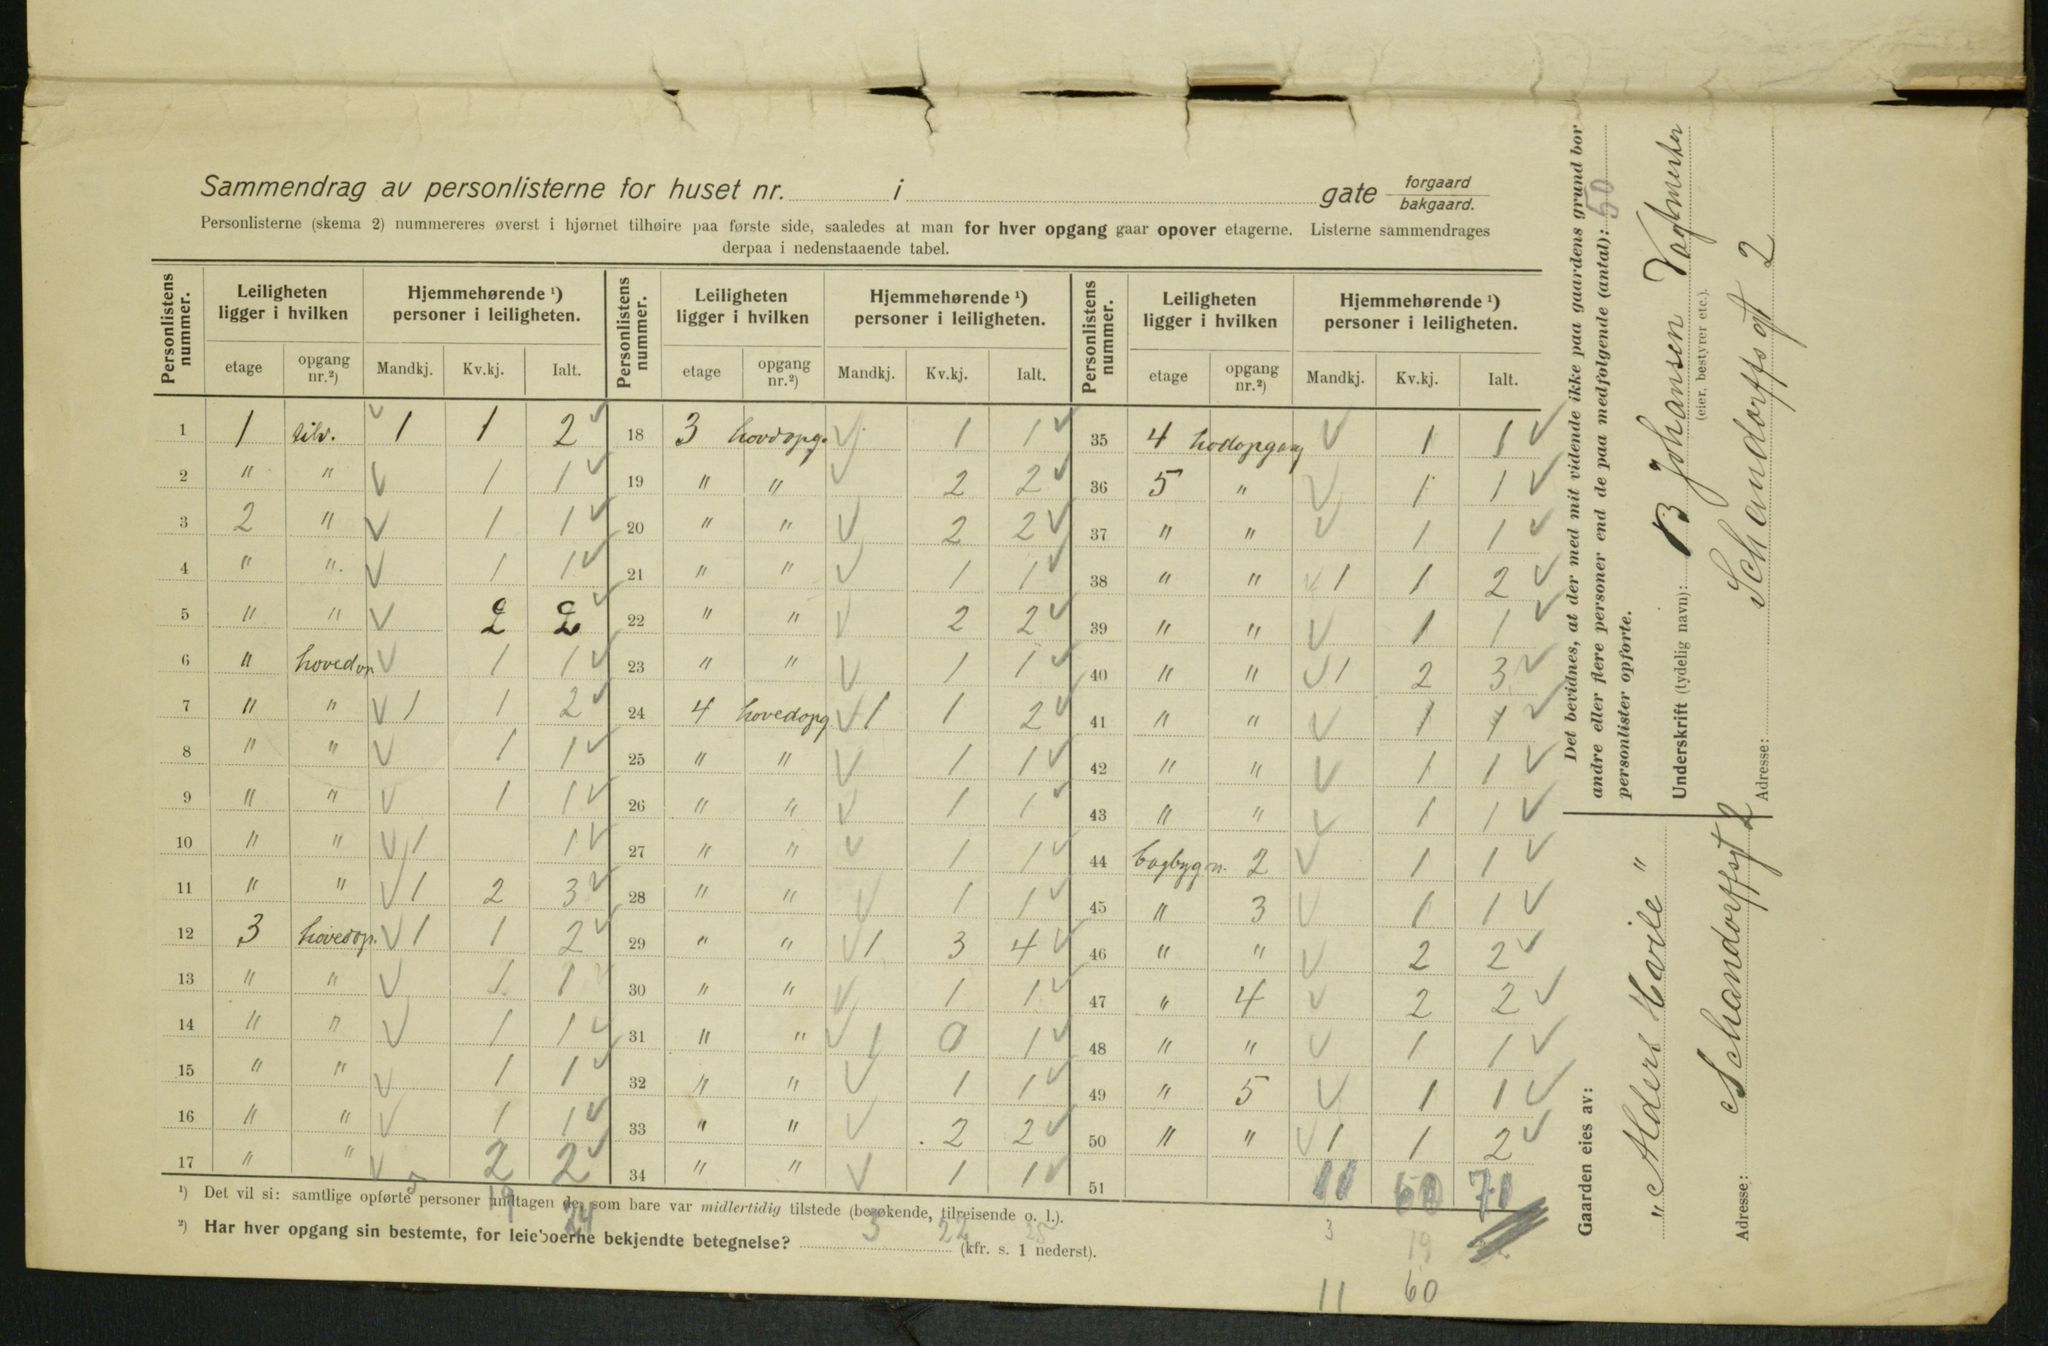 Sammendrag av personlisterne for huset nr. i gate forgaard bakgaard.
Personlisterne (skema 2) nummereres øverst i hjørnet tilhøire paa første side, saaledes at man for hver opgang gaar opover etagerne. Listerne sammendrages
derpaa i nedenstaaende tabel.
Personlistens nummer. Leiligheten ligger i hvilken Hjemmehørende ¹) personer i leiligheten. Personlistens nummer. Leiligheten ligger i hvilken Hjemmehørende ¹) personer i leiligheten. Personlistens nummer. Leiligheten ligger i hvilken Hjemmehørende ¹) personer i leiligheten.
etage opgang nr.²) Mandkj. Kv.kj. Ialt. etage opgang nr.²) Mandkj. Kv.kj. Ialt. etage opgang nr.²) Mandkj. Kv.kj. Ialt.
1 1 tilv. 1 1 2 18 3 hovdopg. 1 1 35 4 hodopgang 1 1
2 " " 1 1 19 " " 2 2 36 5 " 1 1
3 2 " 1 1 20 " " 2 2 37 " " 1 1
4 " " 1 1 21 " " 1 1 38 " " 1 1 2
5 " " 2 2 22 " " 2 2 39 " " 1 1
6 " hovedop 1 1 23 " " 1 1 40 " " 1 2 3
7 " " 1 1 2 24 4 hovedopg 1 1 2 41 " " 1 1
8 " " 1 1 25 " " 1 1 42 " " 1 1
9 " " 1 1 26 " " 1 1 43 " " 1 1
10 " " 1 1 27 " " 1 1 44 bagbygn. 2 1 1
11 " " 1 2 3 28 " " 1 1 45 " 3 1 1
12 3 hovedop. 1 1 2 29 " " 1 3 4 46 " " 2 2
13 " " 1 1 30 " " 1 1 47 " 4 2 2
14 " " 1 1 31 " " 1 0 1 48 " " 1 1
15 " " 1 1 32 " " 1 1 49 " 5 1 1
16 " " 1 1 33 " " 2 2 50 " " 1 1 2
17 " " 2 2 34 " " 1 1 51 11 60 71
5 19 24
¹) Det vil si: samtlige opførte personer undtagen de, som bare var midlertidig tilstede (besøkende, tilreisende o. l.).
²) Har hver opgang sin bestemte, for leieboerne bekjendte betegnelse? (kfr. s. 1 nederst).
3 22 25
3 19
11 60
Det bevidnes, at der med mit vidende ikke paa gaardens grund bor
andre eller flere personer end de paa medfølgende (antal): 50
personlister opførte.
Underskrift (tydelig navn): B Johansen Vagtmester
(eier, bestyrer etc.).
Adresse: Schandorffs gt 2
Gaarden eies av:
"Alders Hvile"
Adresse: Schandorffsgt 2